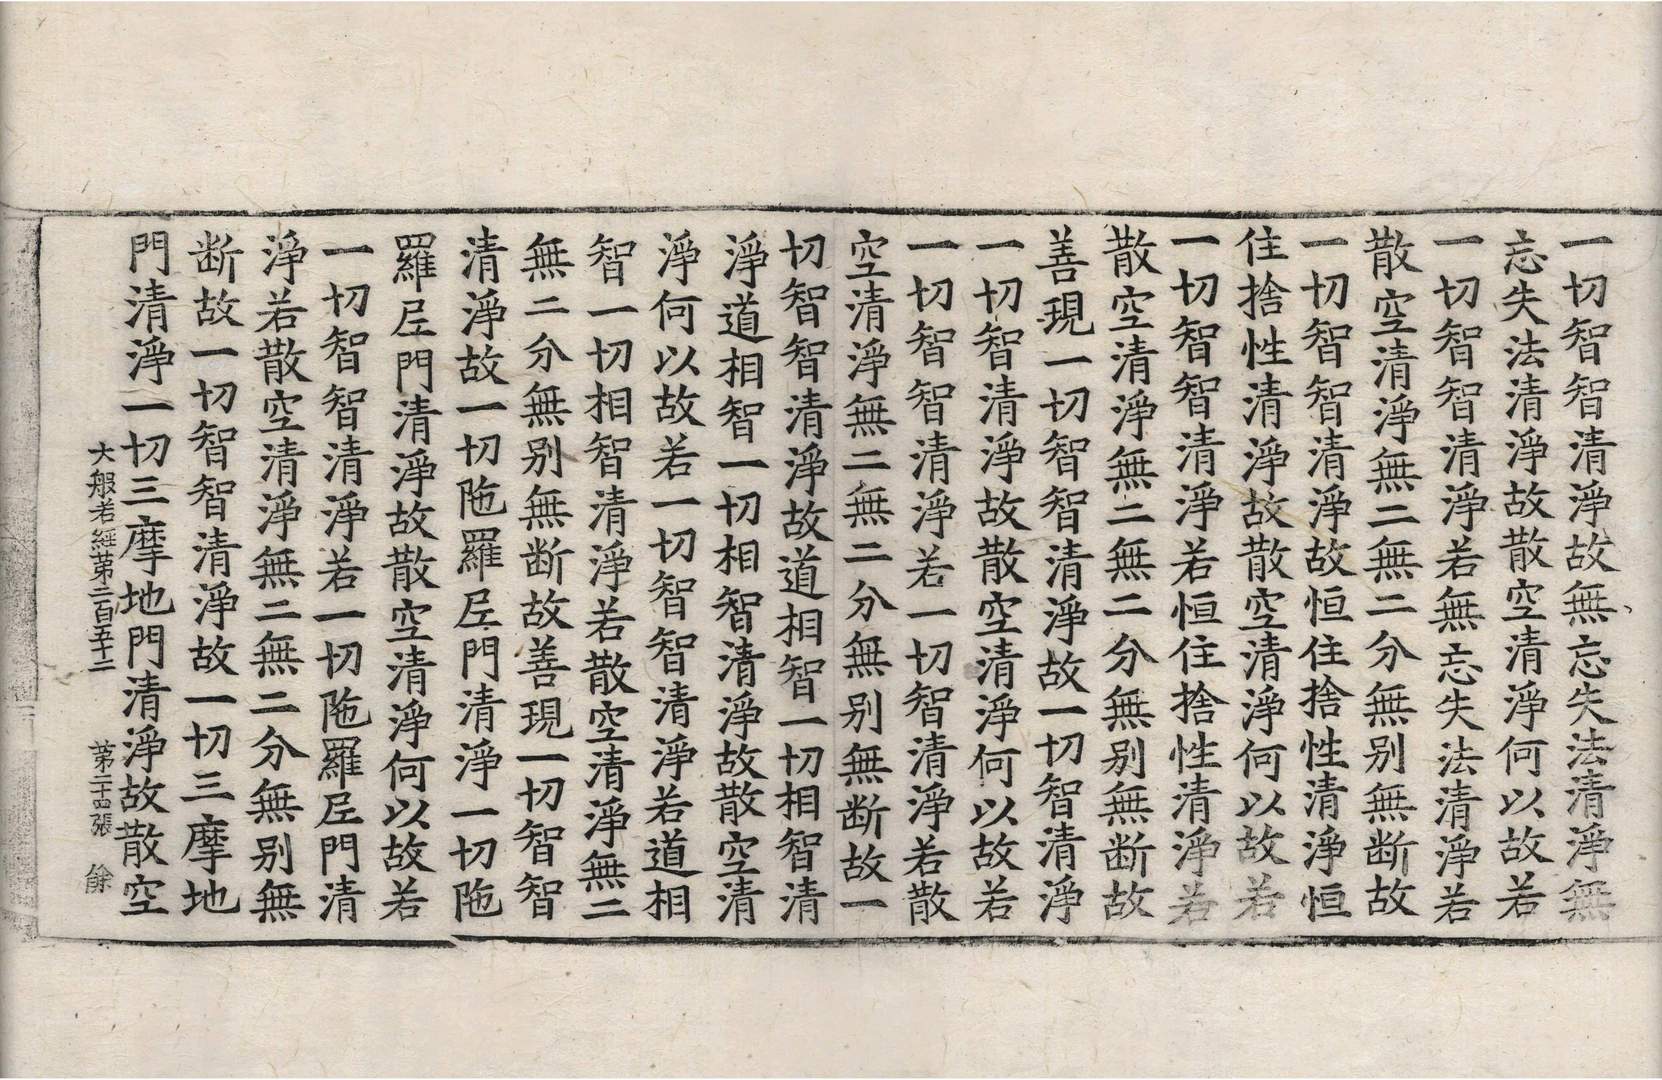 一切智智清淨故無忘失法清淨無
忘失法清淨故散空清淨何以故若
一切智智清淨若無忘失法清淨若
散空清淨無二無二分無别無断故
一切智智清淨故恒住捨性清淨恒
住捨性清淨故散空清淨何以故若
一切智智清淨若恒住捨性清淨若
散空清淨無二無二分無别無断故
善現一切智智清淨故一切智清淨
一切智清淨故散空清淨何以故若
一切智智清淨若一切智清淨若散
空清淨無二無二分無别無断故一
切智智清淨故道相智一切相智清
淨道相智一切相智清淨故散空清
淨何以故若一切智智清淨若道相
智一切相智清淨若散空清淨無二
無二分無别無断故善現一切智智
清淨故一切陁羅尼門清淨一切陁
羅尼門清淨故散空清淨何以故若
一切智智清淨若一切陁羅尼門清
淨若散空清淨無二無二分無别無
断故一切智智清淨故一切三摩地
門清淨一切三摩地門清淨故散空
大般若經苐二百五十二 苐二十四張 餘